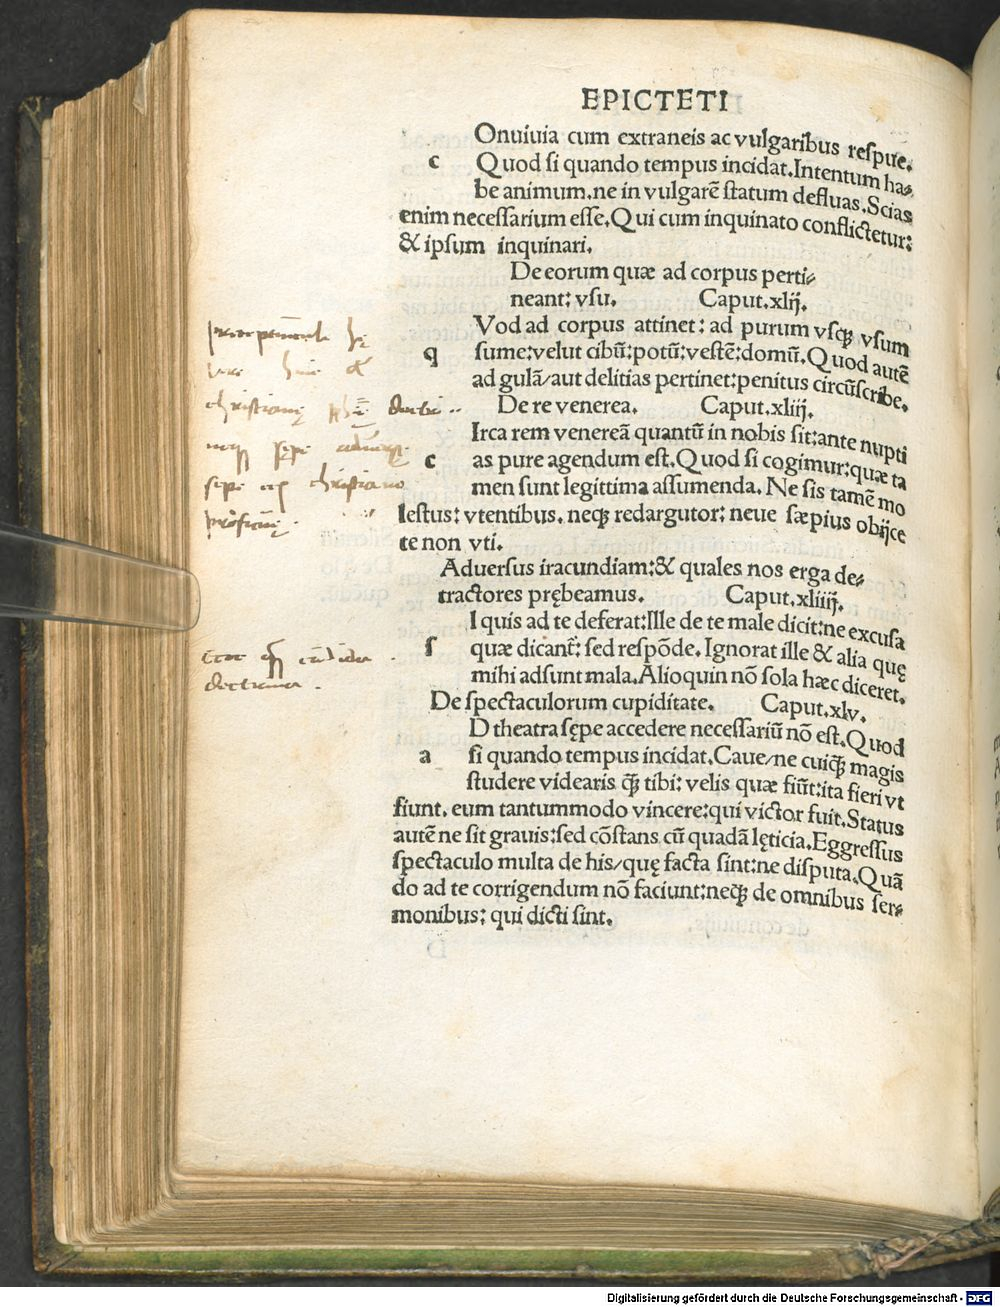 EPICTETI
Onuiuia cum extraneis ac vulgaribus respue.
c Quod si quando tempus incidat. Intentum ha⸗
be animum. ne in vulgarē statum defluas. Scias
enim necessarium esse. Qui cum inquinato conflictetur:
& ipsum inquinari.
De eorum quæ ad corpus perti⸗
neant: vsu. Caput. xlij.
Vod ad corpus attinet: ad purum vsqꝫ vsum
q sume: velut cibū: potū: vestē: domū. Quod autē
ad gulā/aut delitias pertinet: penitus circūscribe.
De re venerea. Caput. xliij.
Irca rem venereā quantū in nobis sit: ante nupti
c as pure agendum est. Quod si cogimur: quæ ta
men sunt legittima assumenda. Ne sis tamē mo
lestus: vtentibus. neqꝫ redargutor: neue sæpius obijce
te non vti.
Aduersus iracundiam: & quales nos erga de⸗
tractores prębeamus. Caput. xliiij.
I quis ad te deferat: Ille de te male dicit: ne excusa
s quæ dicant̄: sed respōde. Ignorat ille & alia quę
mihi adsunt mala. Alioquin nō sola hæc diceret.
De spectaculorum cupiditate. Caput. xlv.
D theatra sępe accedere necessariū nō est. Quod
a si quando tempus incidat. Caue/ne cuiqꝫ magis
studere videaris qꝫ tibi: velis quæ fiūt: ita fieri vt
fiunt. eum tantummodo vincere: qui victor fuit. Status
autē ne sit grauis: sed cōstans cū quadā lęticia. Eggressus
spectaculo multa de his/quę facta sint: ne disputa. Quā
do ad te corrigendum nō faciunt: neqꝫ de omnibus ser⸗
monibus: qui dicti sint.
christiano
doctrina.
Digitalisierung gefördert durch die Deutsche Forschungsgemeinschaft - DFG